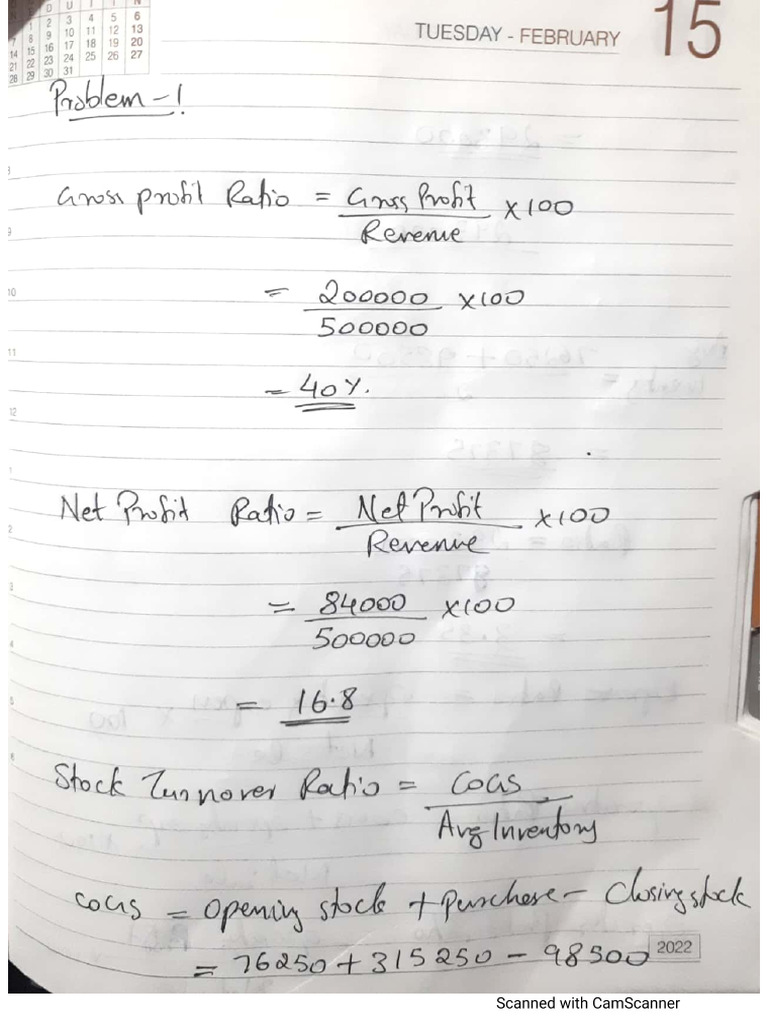 D U I I N
2 3 4 5 6
1 8 9 10 11 12 13
7 15 16 17 18 19 20
14 22 23 24 25 26 27
21 29 30 31
28
TUESDAY - FEBRUARY 15
Problem - 1
8
Gross profit Ratio = Gross Profit / Revenue × 100
9
10
= 200000 / 500000 × 100
11
= 40 %.
12
1
Net Profit Ratio = Net Profit / Revenue × 100
2
3
= 84000 / 500000 × 100
4
5
= 16.8
6
Stock Turnover Ratio = COGS / Avg Inventory
COGS = Opening stock + Purchase - Closing stock
= 76250 + 315250 - 98500
2022
Scanned with CamScanner